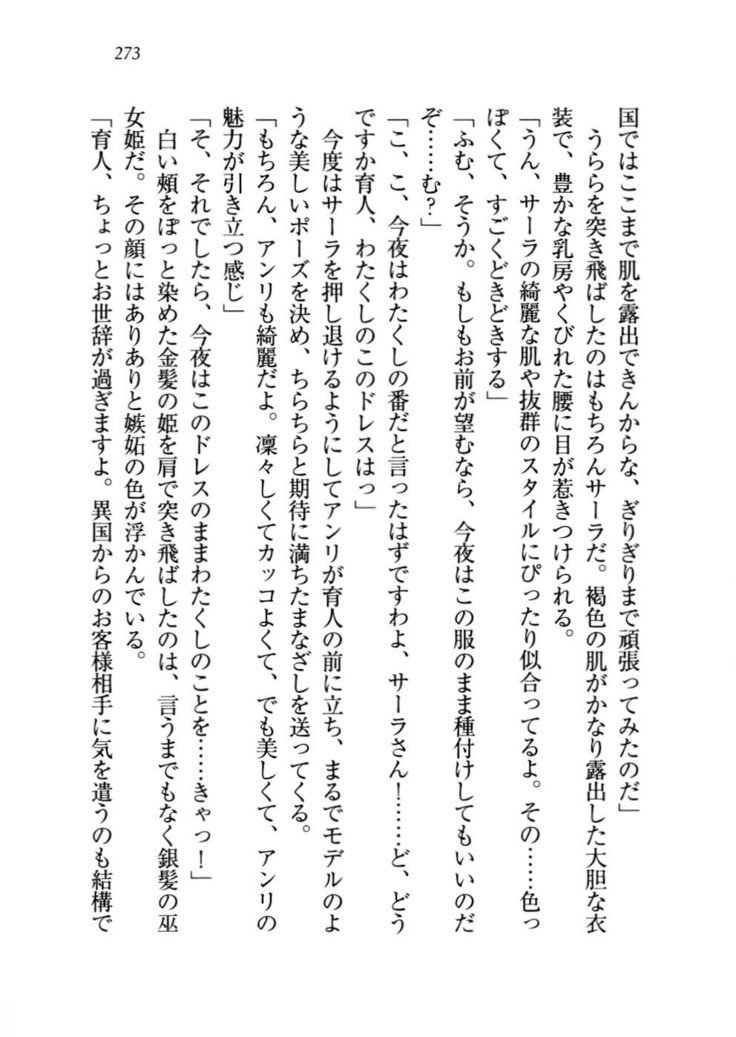 273
国ではここまで肌を露出できんからな、ぎりぎりまで頑張ってみたのだ」
うららを突き飛ばしたのはもちろんサーラだ。褐色の肌がかなり露出した大胆な衣
装で、豊かな乳房やくびれた腰に目が惹きつけられる。
「うん、サーラの綺麗な肌や抜群のスタイルにぴったり似合ってるよ。その……色っ
ぽくて、すごくどきどきする」
「ふむ、そうか。もしもお前が望むなら、今夜はこの服のまま種付けしてもいいのだ
ぞ……む?」
「こ、こ、今夜はわたくしの番だと言ったはずですわよ、サーラさん!……ど、どう
ですか育人、わたくしのこのドレスはっ」
今度はサーラを押し退けるようにしてアンリが育人の前に立ち、まるでモデルのよ
うな美しいポーズを決め、ちらちらと期待に満ちたまなざしを送ってくる。
「もちろん、アンリも綺麗だよ。凜々しくてカッコよくて、でも美しくて、アンリの
魅力が引き立つ感じ」
「そ、それでしたら、今夜はこのドレスのままわたくしのことを……きゃっ!」
白い頰をぽっと染めた金髪の姫を肩で突き飛ばしたのは、言うまでもなく銀髪の巫
女姫だ。その顔にはありありと嫉妬の色が浮かんでいる。
「育人、ちょっとお世辞が過ぎますよ。異国からのお客様相手に気を遣うのも結構で